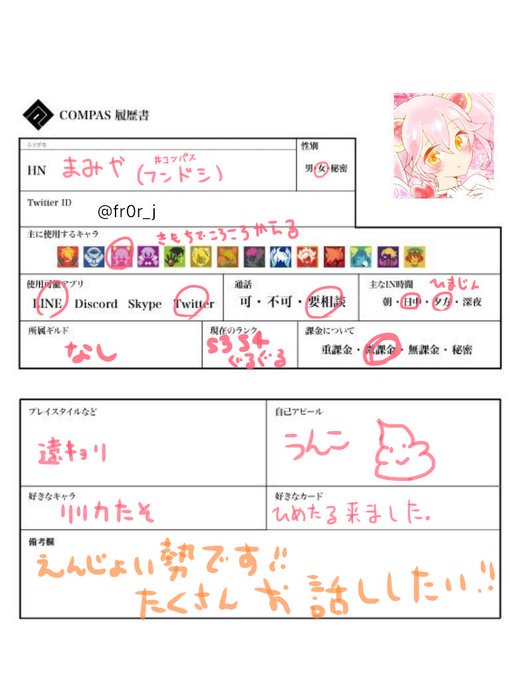 COMPAS 履歴書
ふりがな
HN まみや (#コンパス フンドシ)
性別
男・女・秘密
Twitter ID
@fr0r_j
主に使用するキャラ
きもちでころころかわる
使用可能アプリ
LINE Discord Skype Twitter
通話
可・不可・要相談
主なIN時間
ひまじん
朝・日中・夕方・深夜
所属ギルド
なし
現在のランク
S3 S4
ぐるぐる
課金について
重課金・微課金・無課金・秘密
プレイスタイルなど
遠キョリ
自己アピール
うんこ
好きなキャラ
リリカたそ
好きなカード
ひめたる来ました。
備考欄
えんじょい勢です!!
たくさんお話ししたい!!